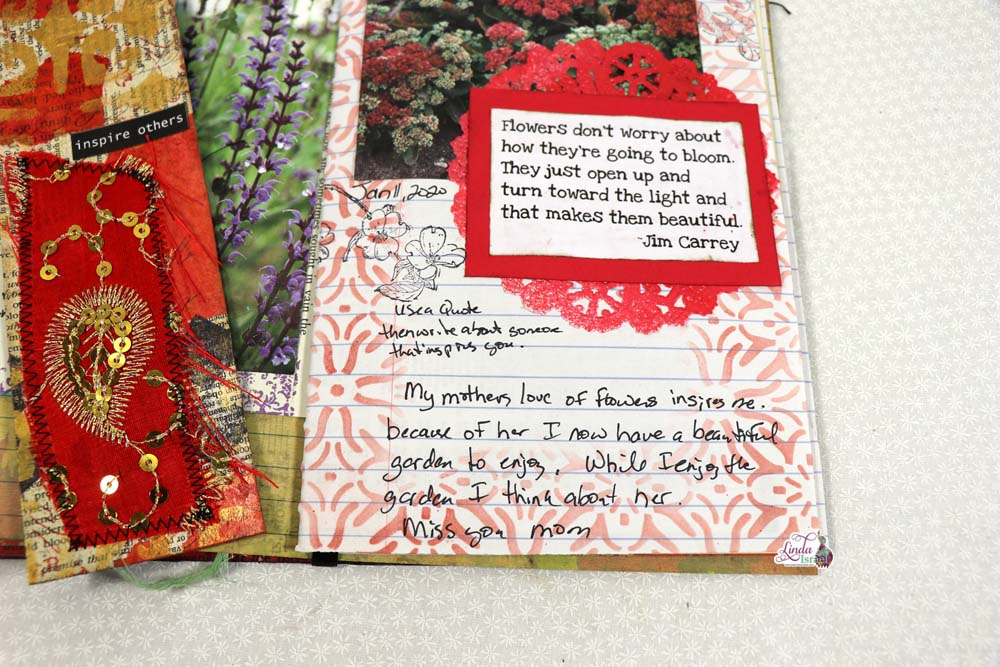 inspire others
Flowers don't worry about
how they're going to bloom.
They just open up and
turn toward the light and
that makes them beautiful.
~Jim Carrey
Jan 11, 2020
use a Quote
then write about someone
that inspires you.
My mothers love of flowers inspires me.
because of her I now have a beautiful
garden to enjoy. While I enjoy the
garden I think about her.
Miss you mom
Linda
Israel